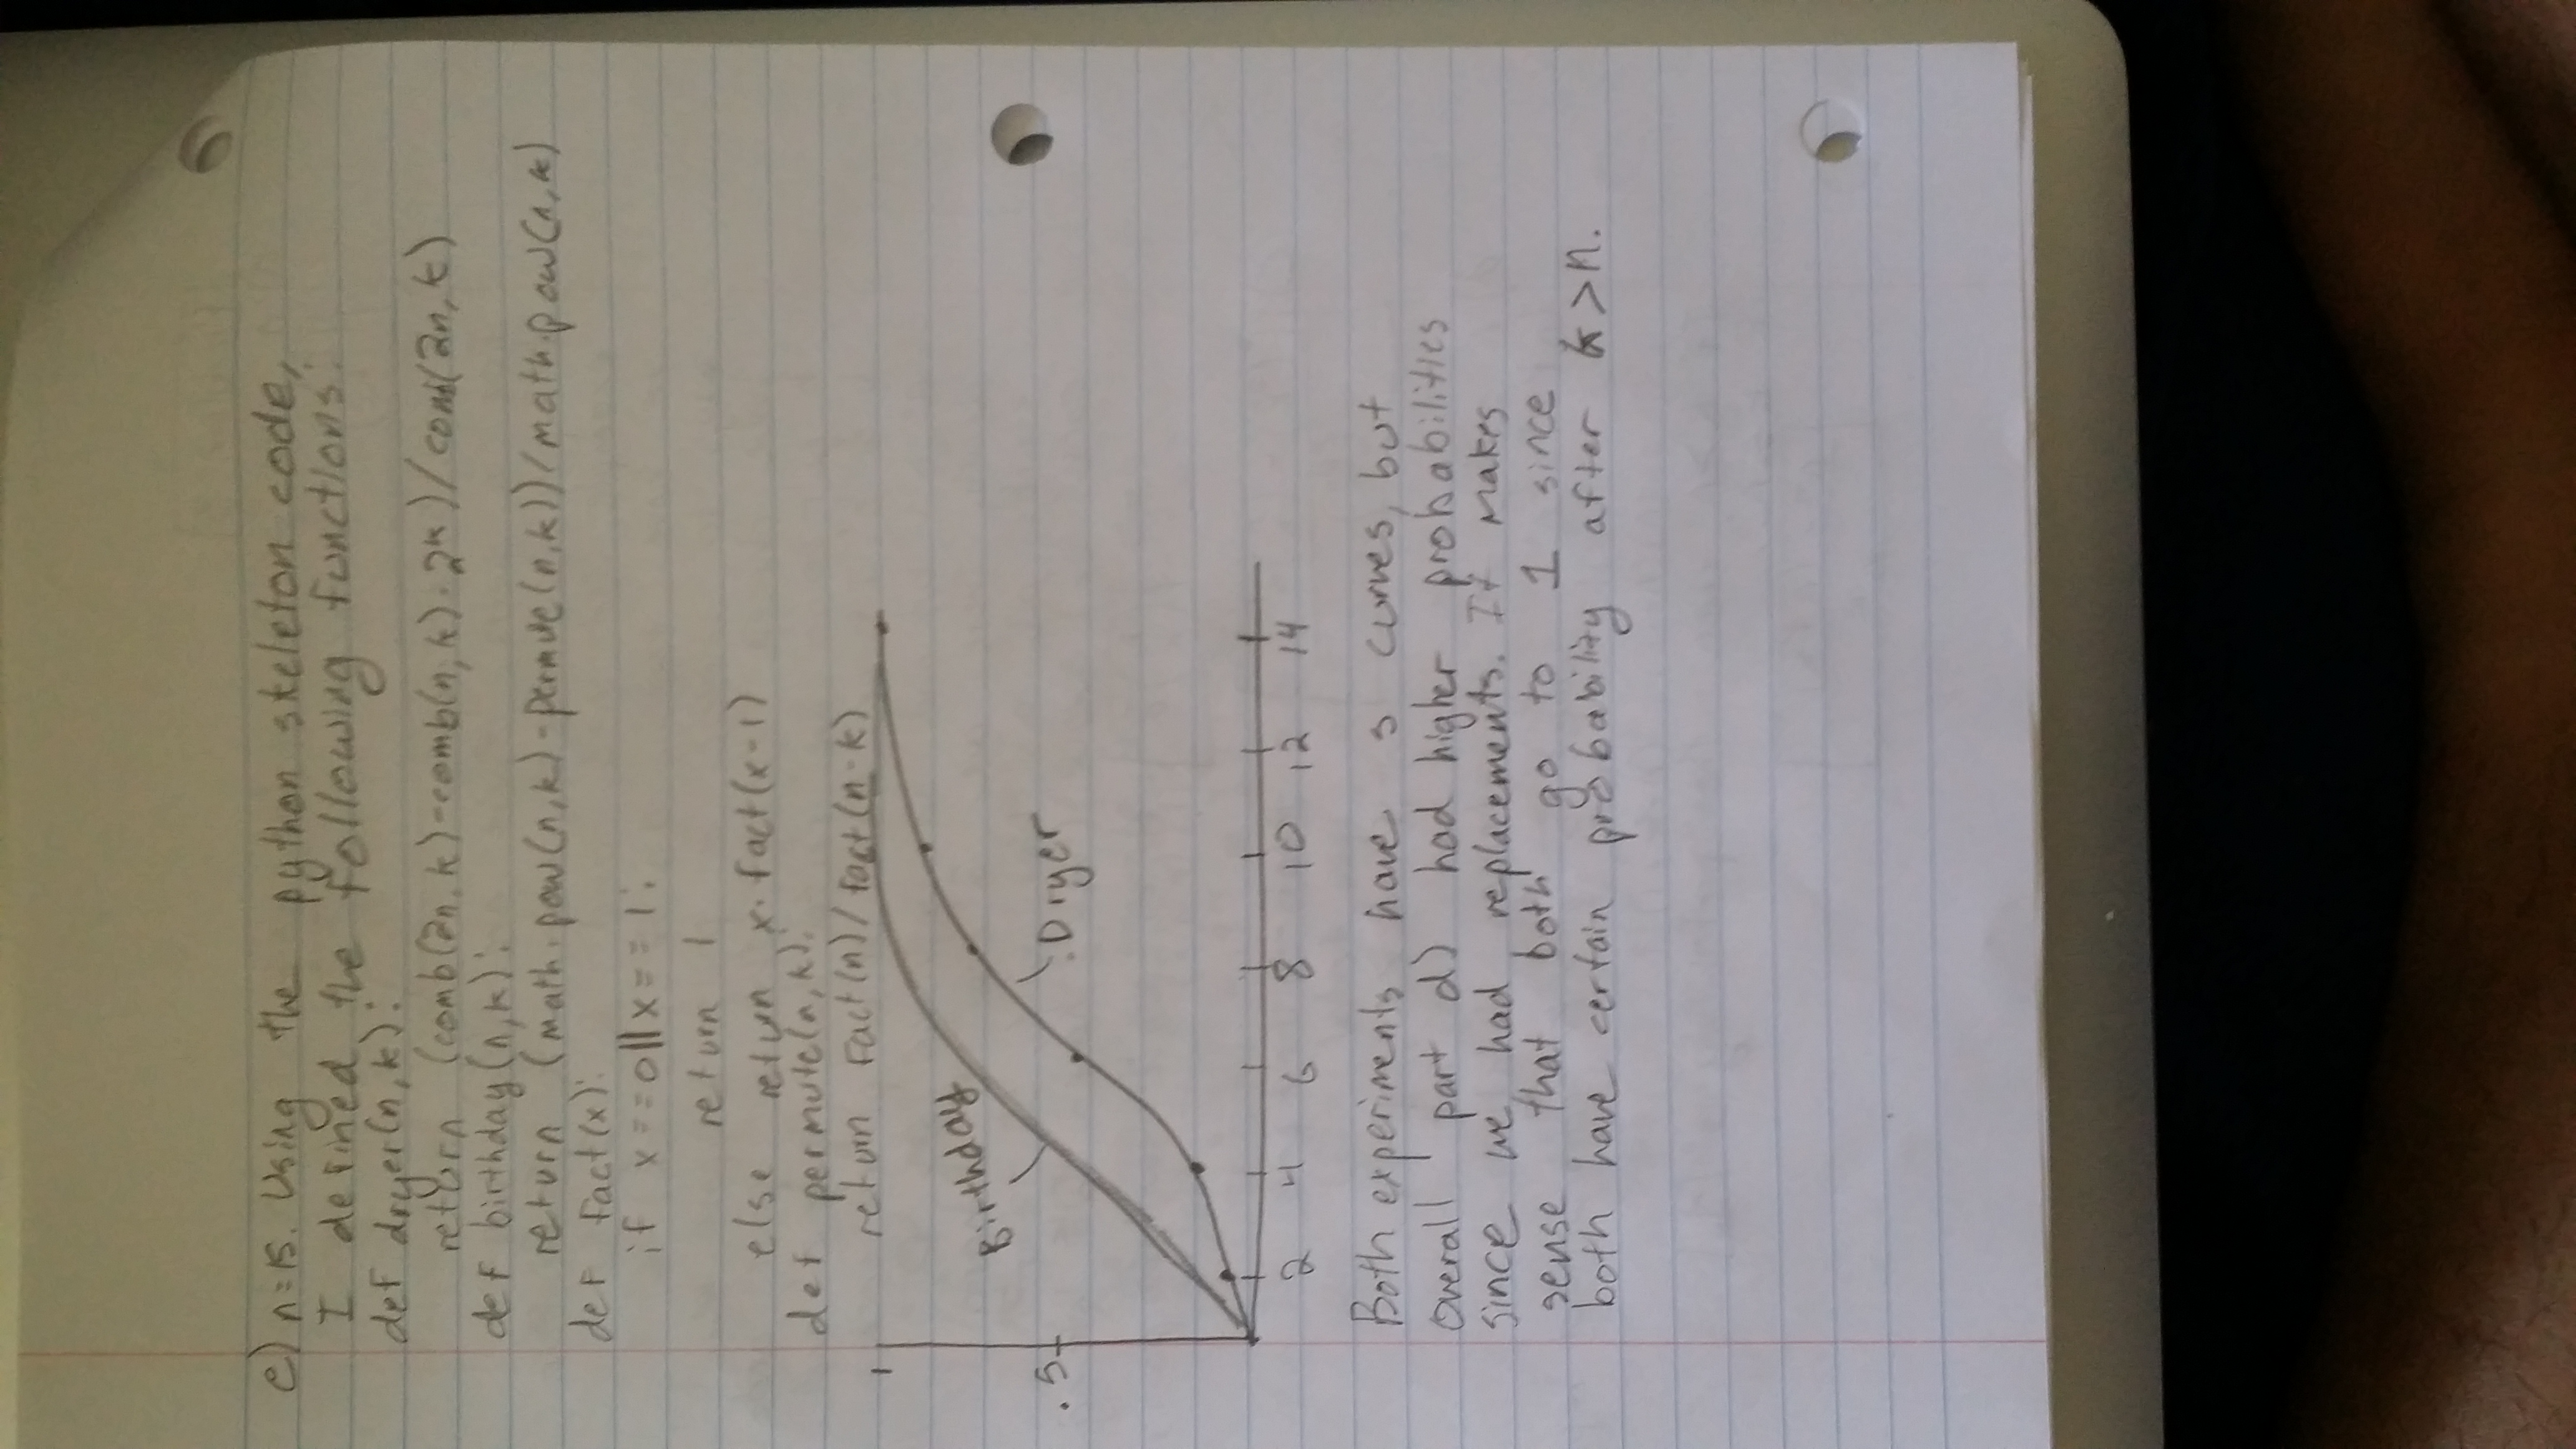 e) n=15. Using the python skeleton code,
I defined the following functions:
def dryer(n,k):
return (comb(2n,k)-comb(n,k)·2^k)/comb(2n,k)
def birthday(n,k):
return (math.pow(n,k)-permute(n,k))/math.pow(n,k)
def fact(x):
if x==0||x==1:
return 1
else return x·fact(x-1)
def permute(n,k):
return fact(n)/fact(n-k)
1
Birthday
.5
Dryer
2 4 6 8 10 12 14
Both experiments have s curves, but
overall part d) had higher probabilities
since we had replacements. It makes
sense that both go to 1 since
both have certain probability after k>n.